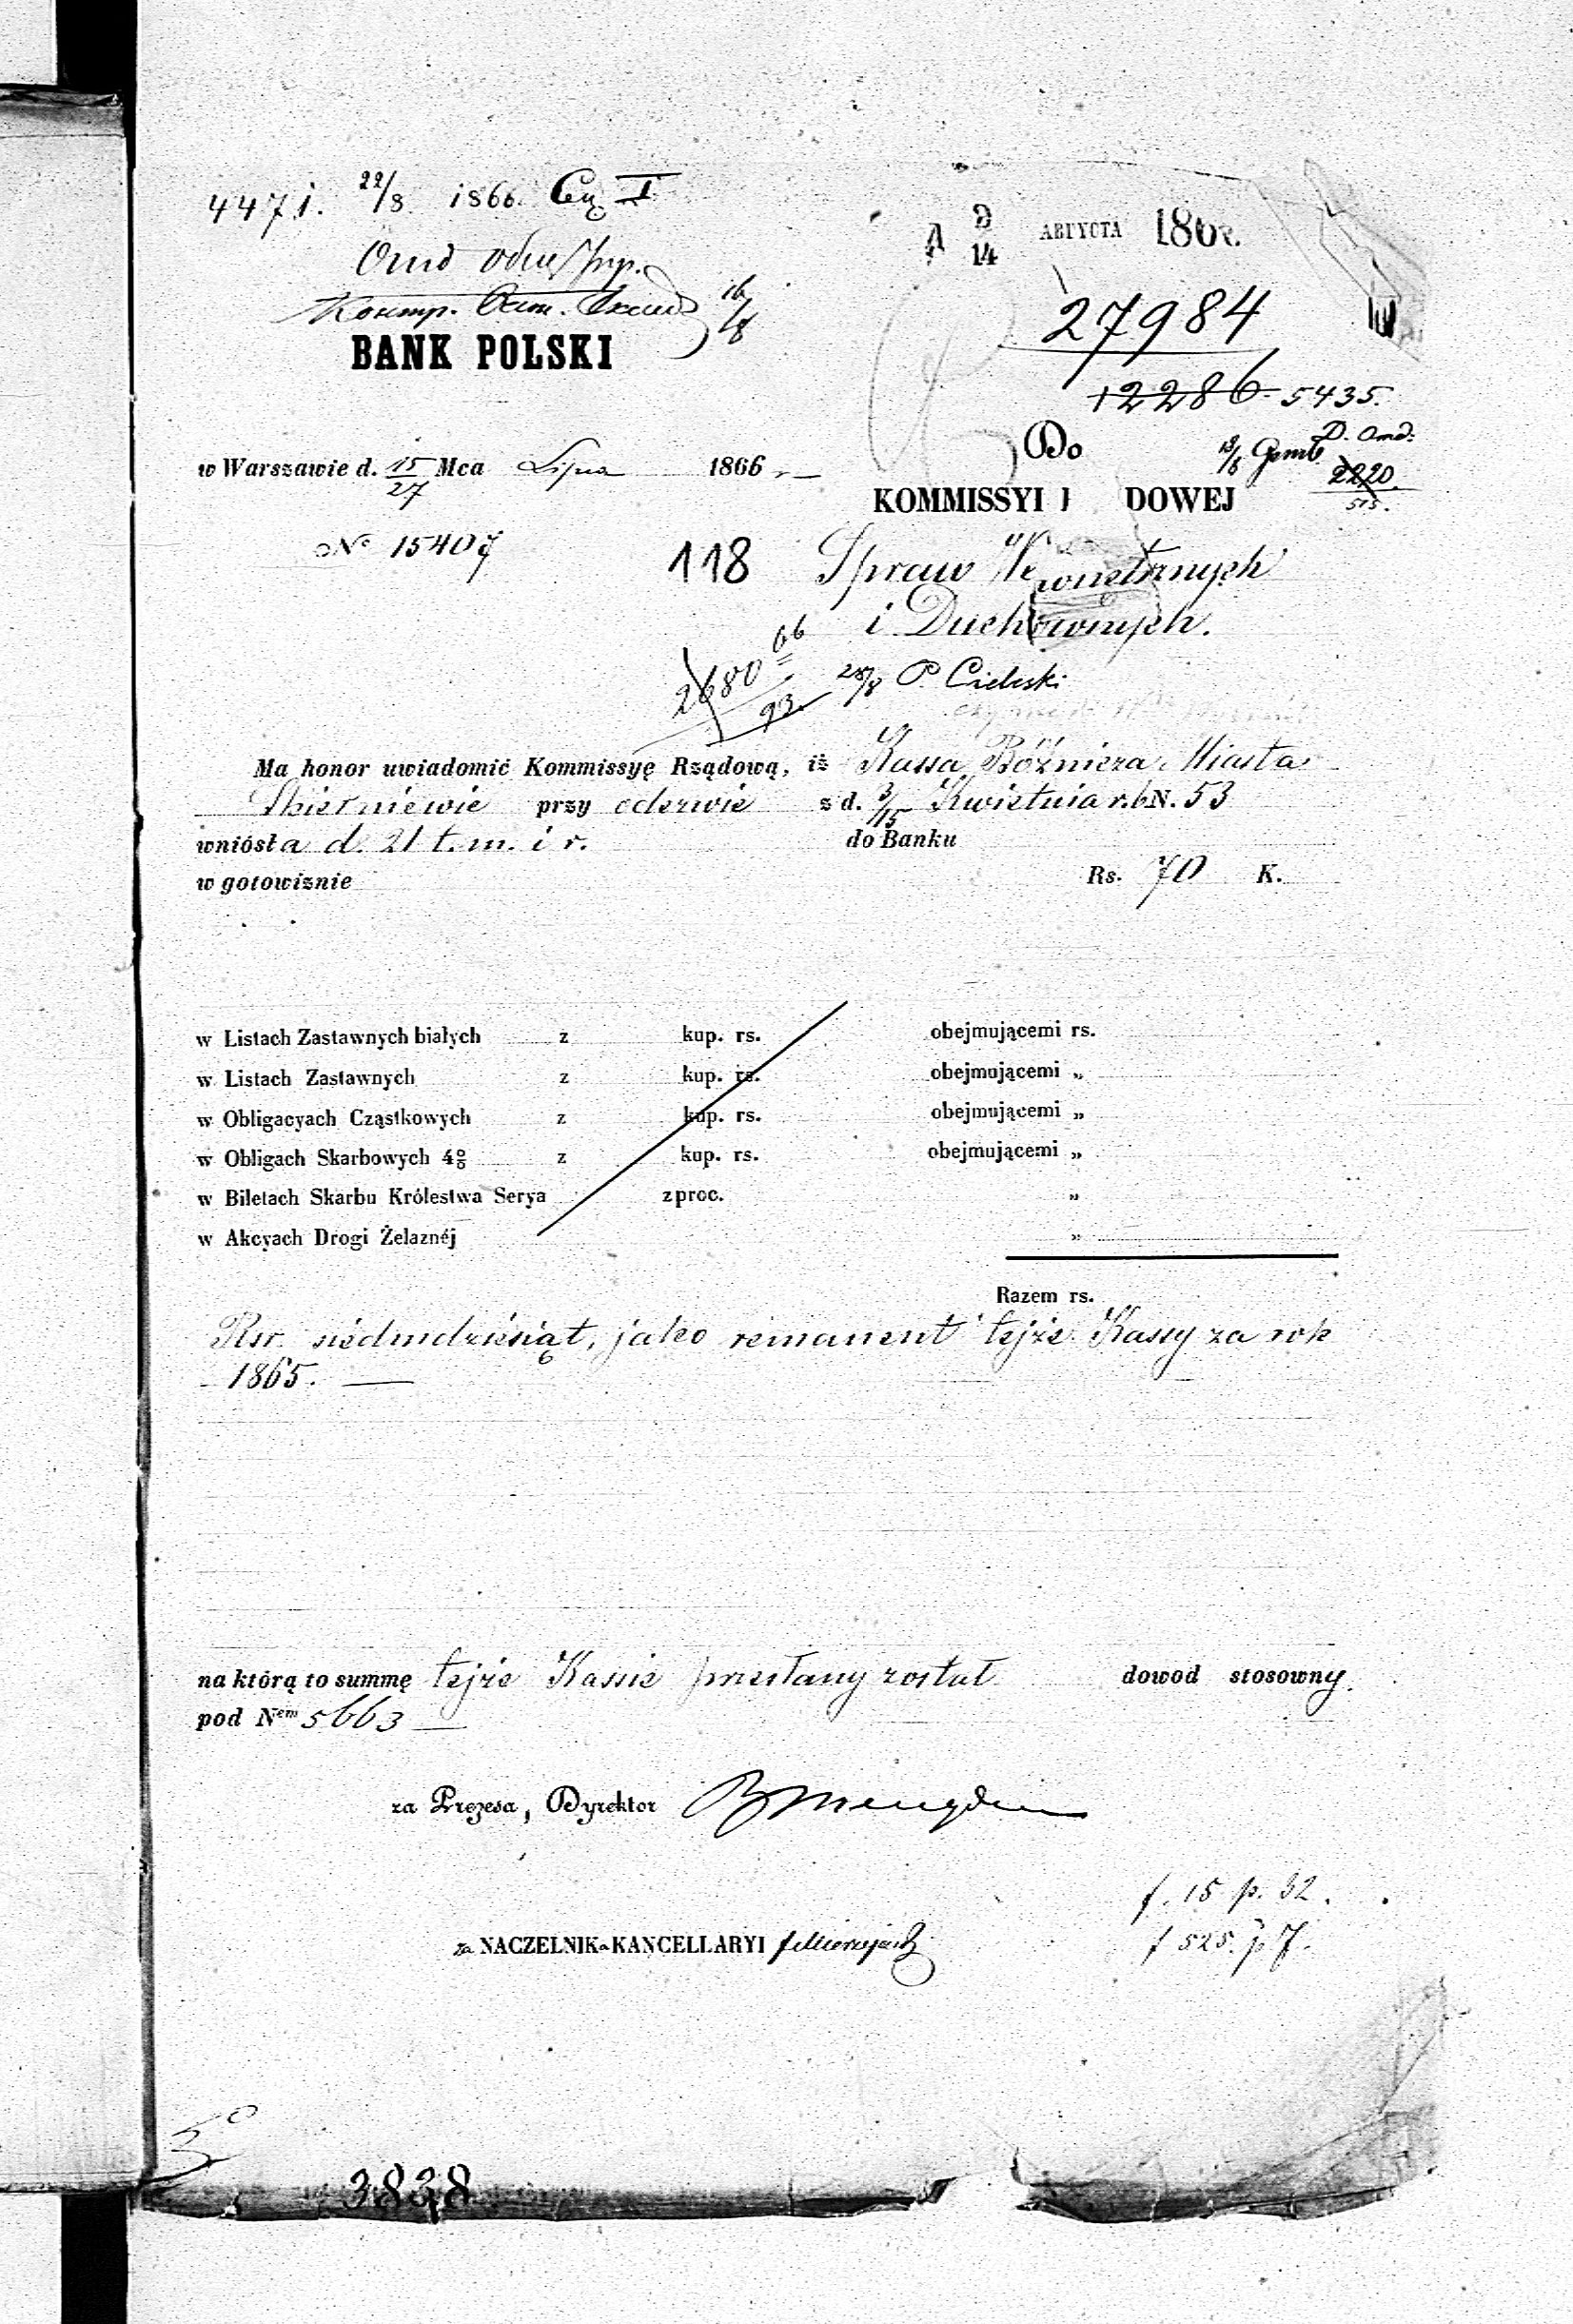 4471. 22/8 1866.
А 2/14 АВГУСТА 186
16/8
BANK POLSKI
27984
12286 5435.
Do
2220.
515.
w Warszawie d. 15/27 Mca Lipca 1866 r.
KOMMISSYI DOWEJ
No 15407
118 Spraw Wewnętrznych
i Duchownych.
2680 66
93.
28/8 P. Cieleski
Ma honor uwiadomić Kommissyę Rządową, iż Kassa Bóżnicza Miasta
Skierniewic przy odezwie z d. 3/15 Kwietnia r. b N. 53
wniósła d. 21 t. m. i r. do Banku
w gotowiznie Rs. 70 K.
w Listach Zastawnych białych z kup. rs. obejmującemi rs.
w Listach Zastawnych z kup. rs. obejmującemi „
w Obligacyach Cząstkowych z kup. rs. obejmującemi „
w Obligach Skarbowych 4% z kup. rs. obejmującemi „
w Biletach Skarbu Królestwa Serya z proc. „
w Akcyach Drogi Żelaznéj „
Razem rs.
Rsr. siedmdziesiąt, jako remanent tejże Kassy za rok
1865.
na którą to summę tejże Kassie przesłany został dowod stosowny.
pod Nem 5663
za Prezesa, Dyrektor
za NACZELNIKa KANCELLARYI
f. 15 p. 32.
f 525. p 7.
3838